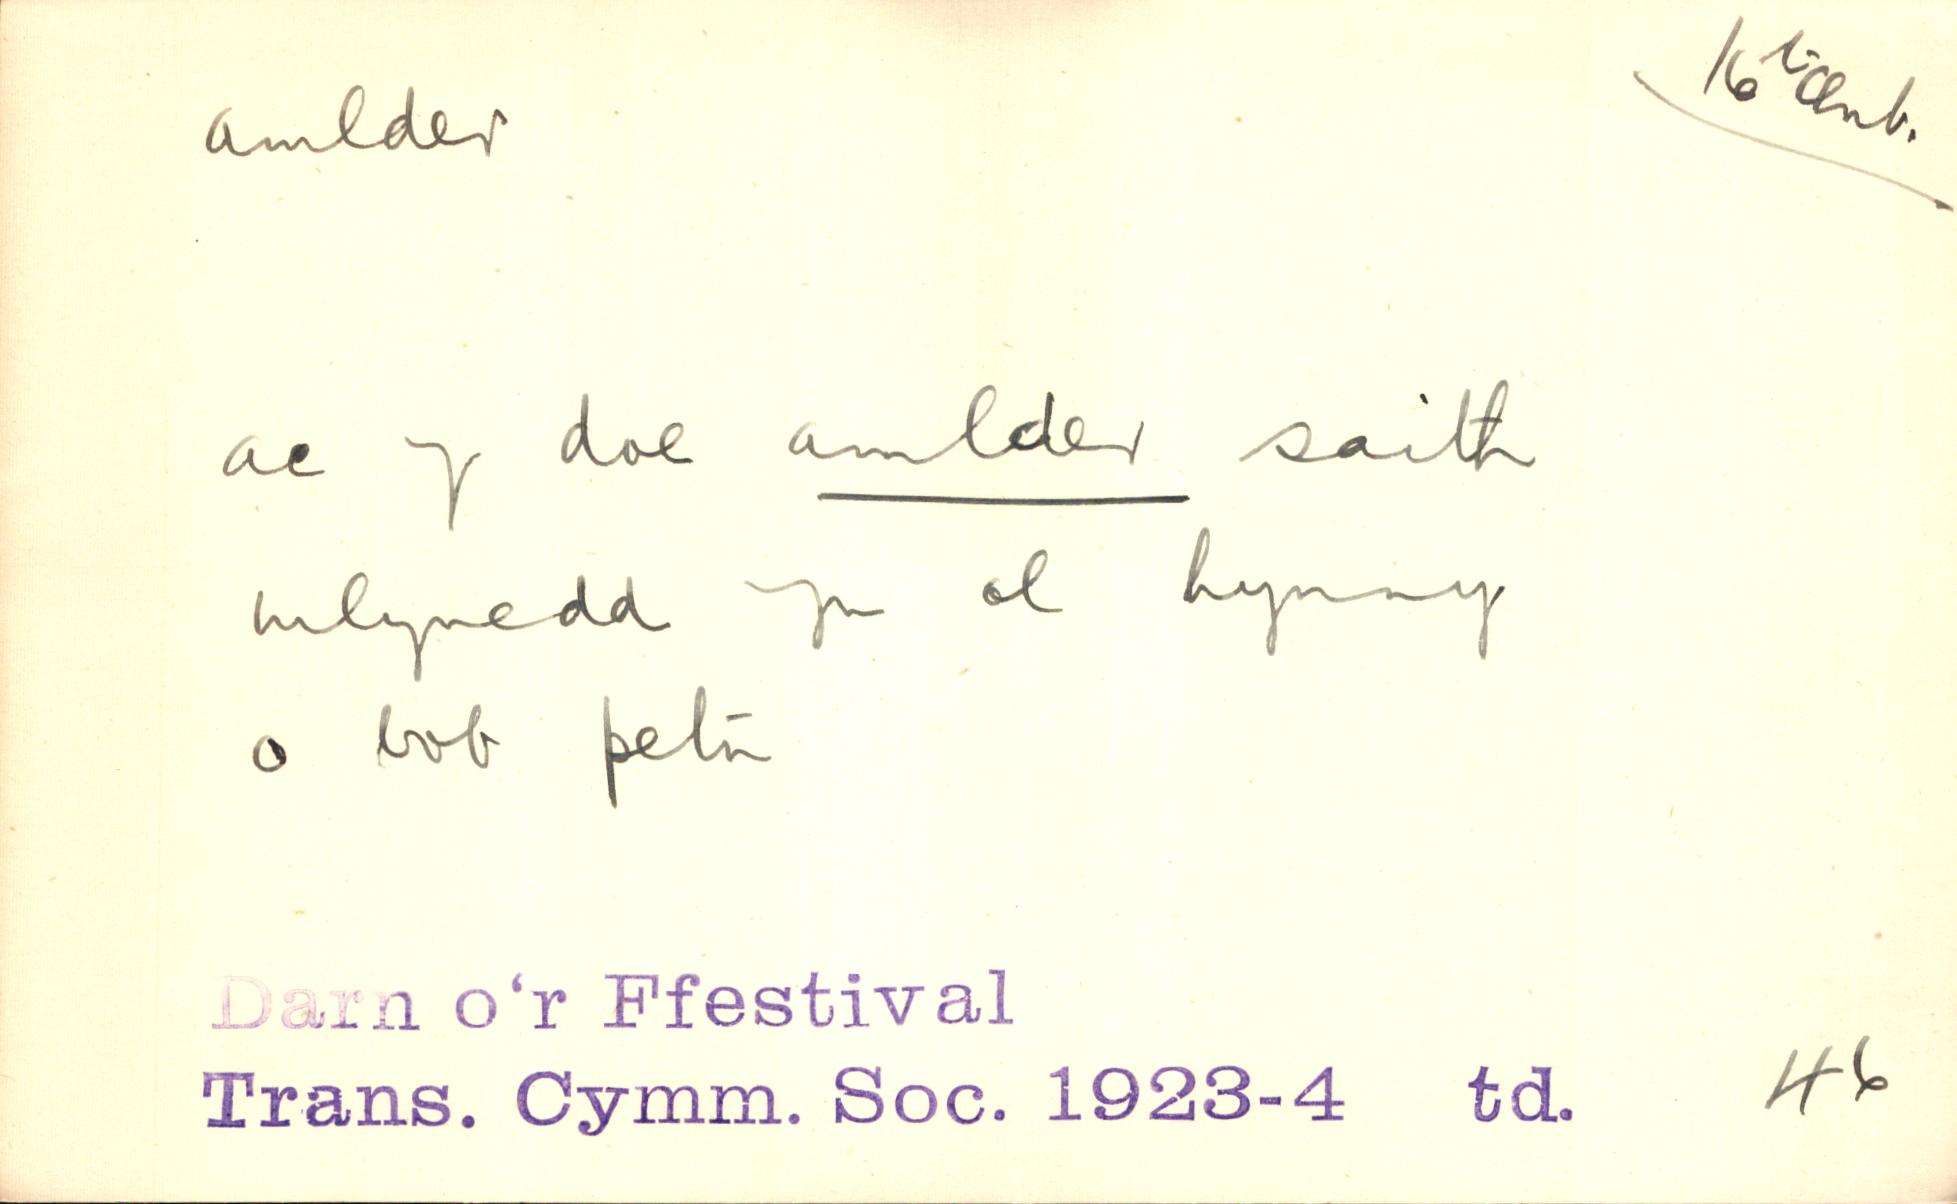 amlder
16th Cent.
ac y doe amlder saith
mlynedd yn ol hynny
o bob peth
Darn o'r Ffestival
Trans. Cymm. Soc. 1923-4 td. 46